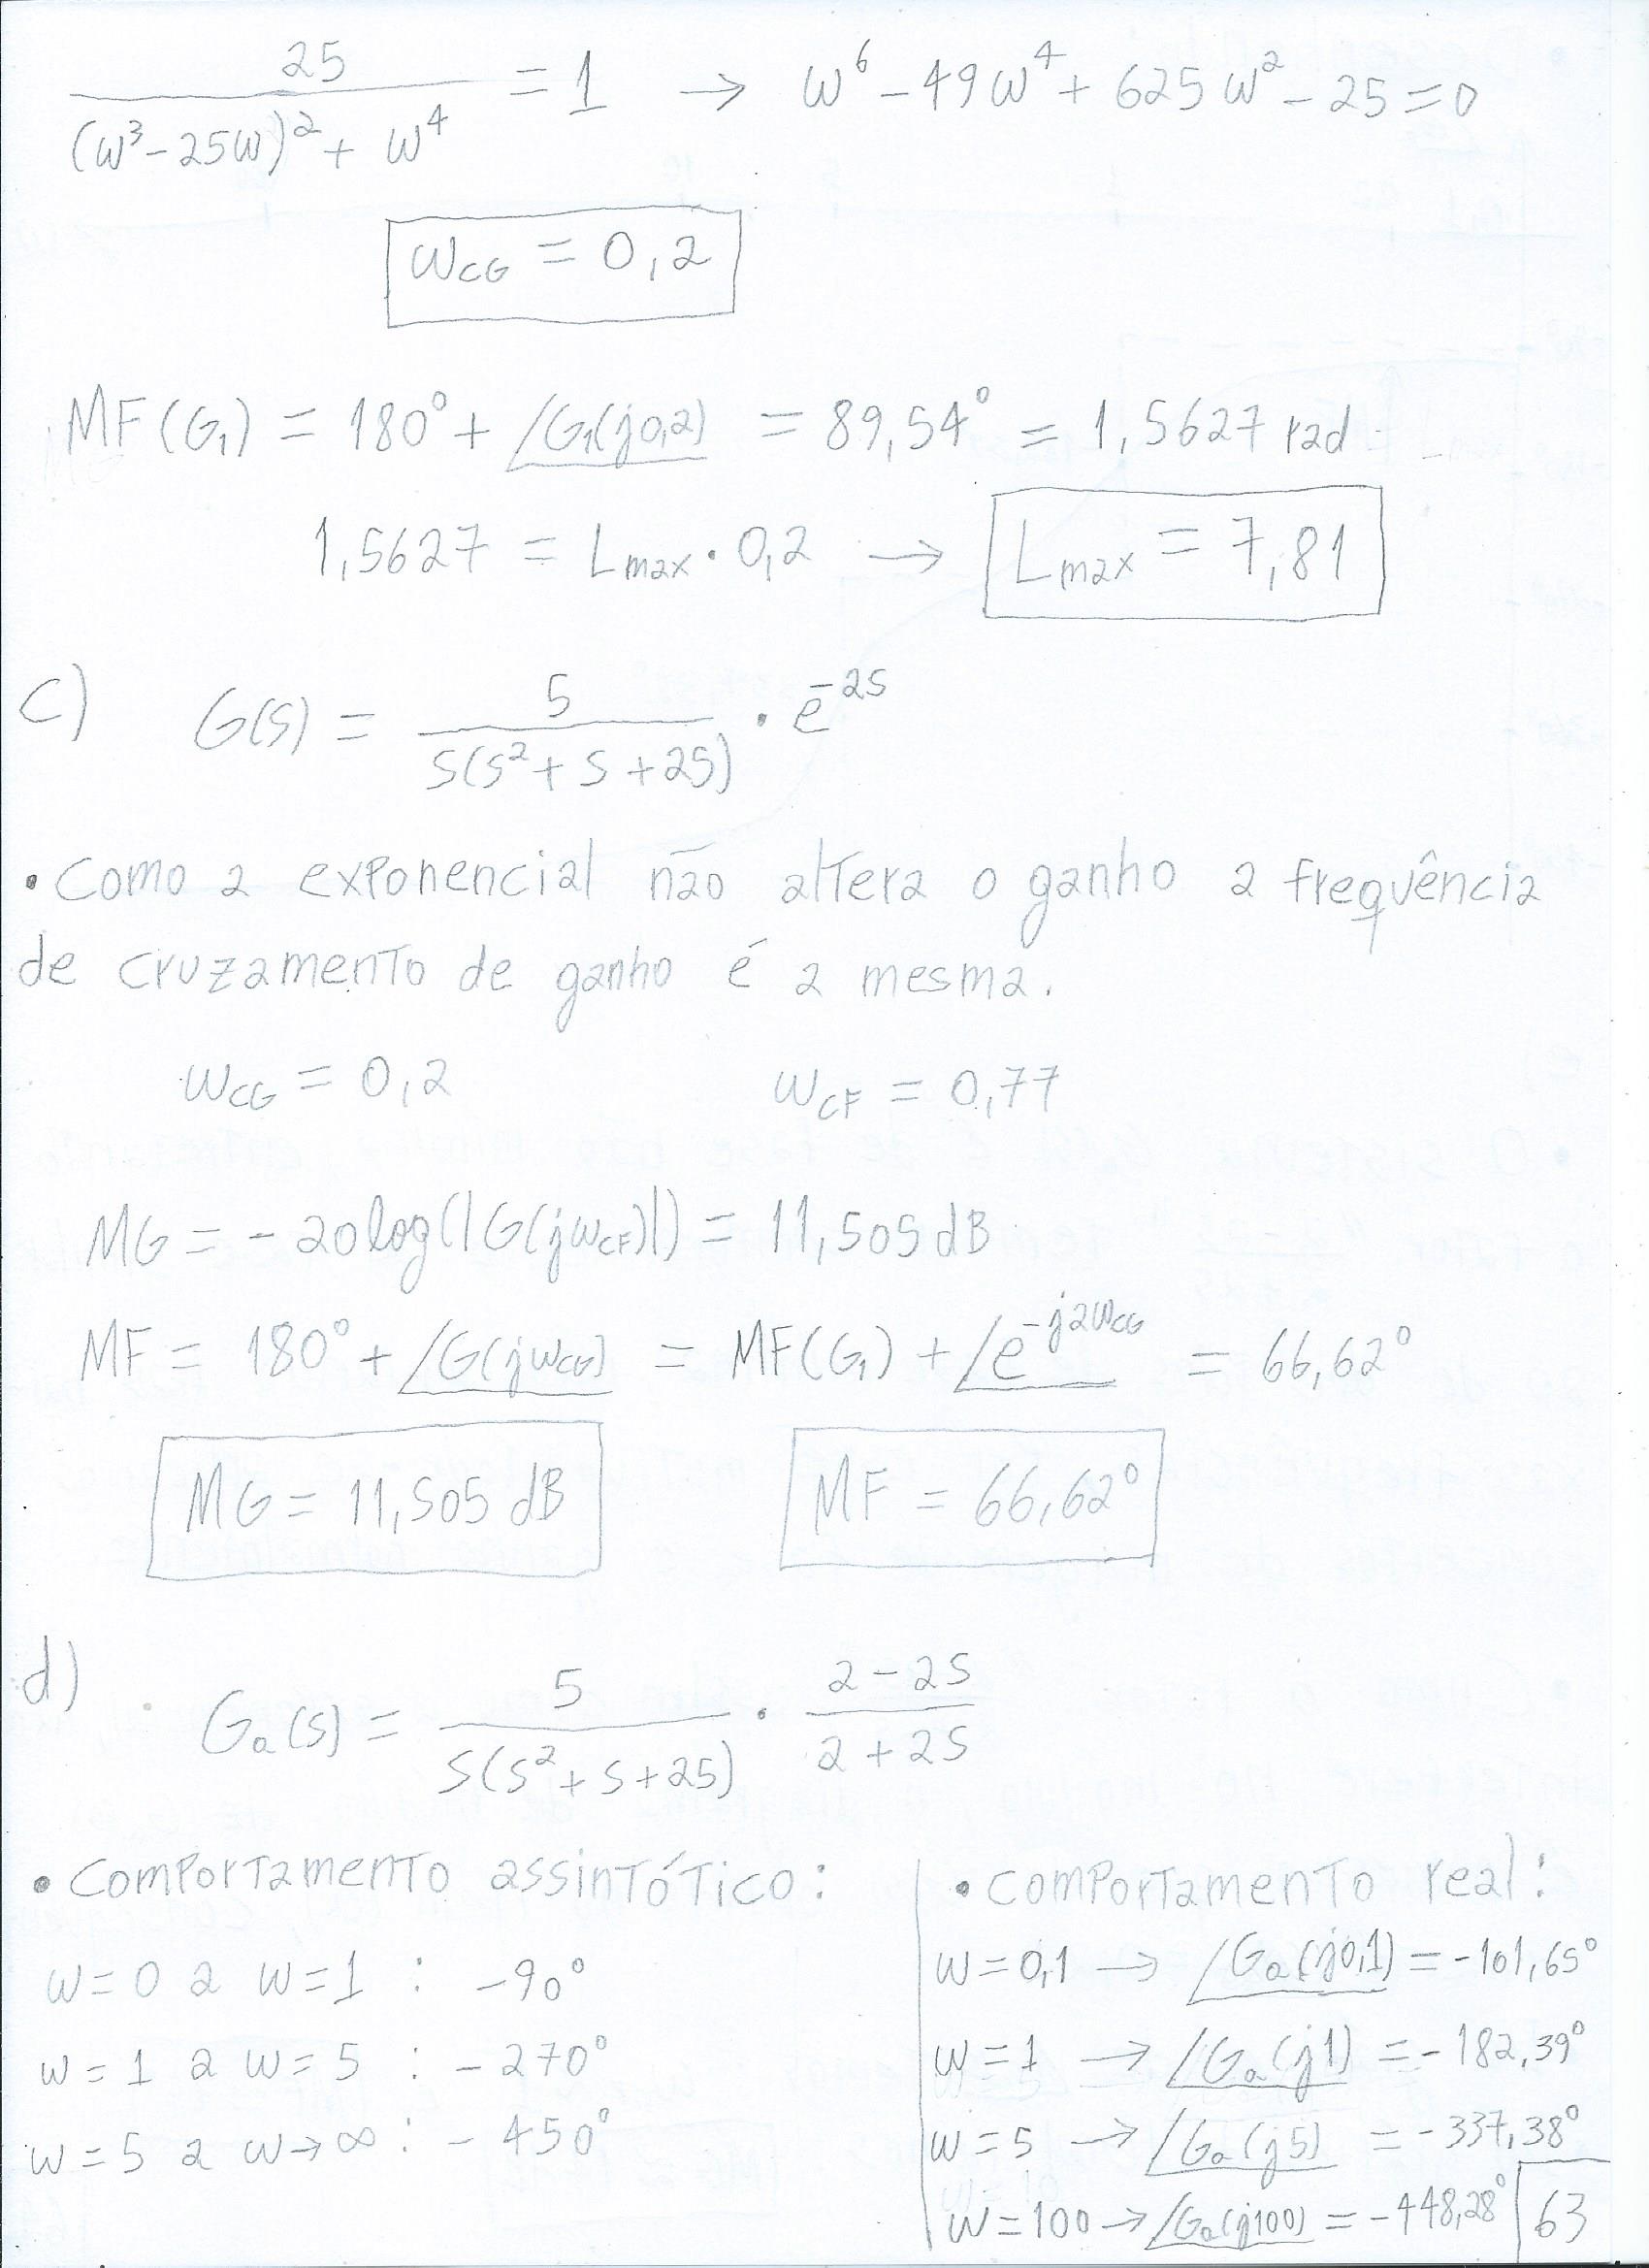 25 / ((ω³-25ω)² + ω⁴) = 1 → ω⁶ - 49ω⁴ + 625ω² - 25 = 0
ωCG = 0,2
MF(G₁) = 180° + /G₁(j0,2) = 89,54° = 1,5627 rad
1,5627 = Lmax · 0,2 → Lmax = 7,81
c) G(s) = 5 / (s(s² + s + 25)) · e^-2s
• Como a exponencial não altera o ganho a frequência
de cruzamento de ganho é a mesma.
ωCG = 0,2 ωCF = 0,77
MG = - 20log(|G(jωCF)|) = 11,505 dB
MF = 180° + /G(jωCG) = MF(G₁) + /e^-j2ωCG = 66,62°
MG = 11,505 dB MF = 66,62°
d) Ga(s) = 5 / (s(s² + s + 25)) · (2 - 2s) / (2 + 2s)
• Comportamento assintótico:
ω = 0 a ω = 1 : -90°
ω = 1 a ω = 5 : -270°
ω = 5 a ω → ∞ : -450°
• Comportamento real:
ω = 0,1 → /Ga(j0,1) = -101,65°
ω = 1 → /Ga(j1) = -182,39°
ω = 5 → /Ga(j5) = -337,38°
ω = 100 → /Ga(j100) = -448,28°
63